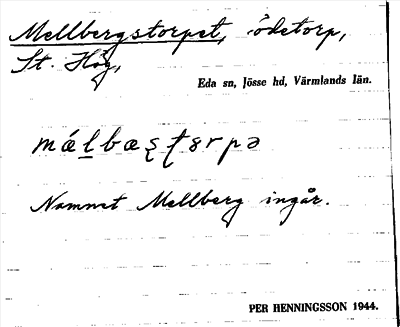 Mellbergstorpet, ödetorp,
St. Hög,
Eda sn, Jösse hd, Värmlands län.
mǽl̲bæʂʈɞrpə
Namnet Mellberg ingår.
PER HENNINGSSON 1944.